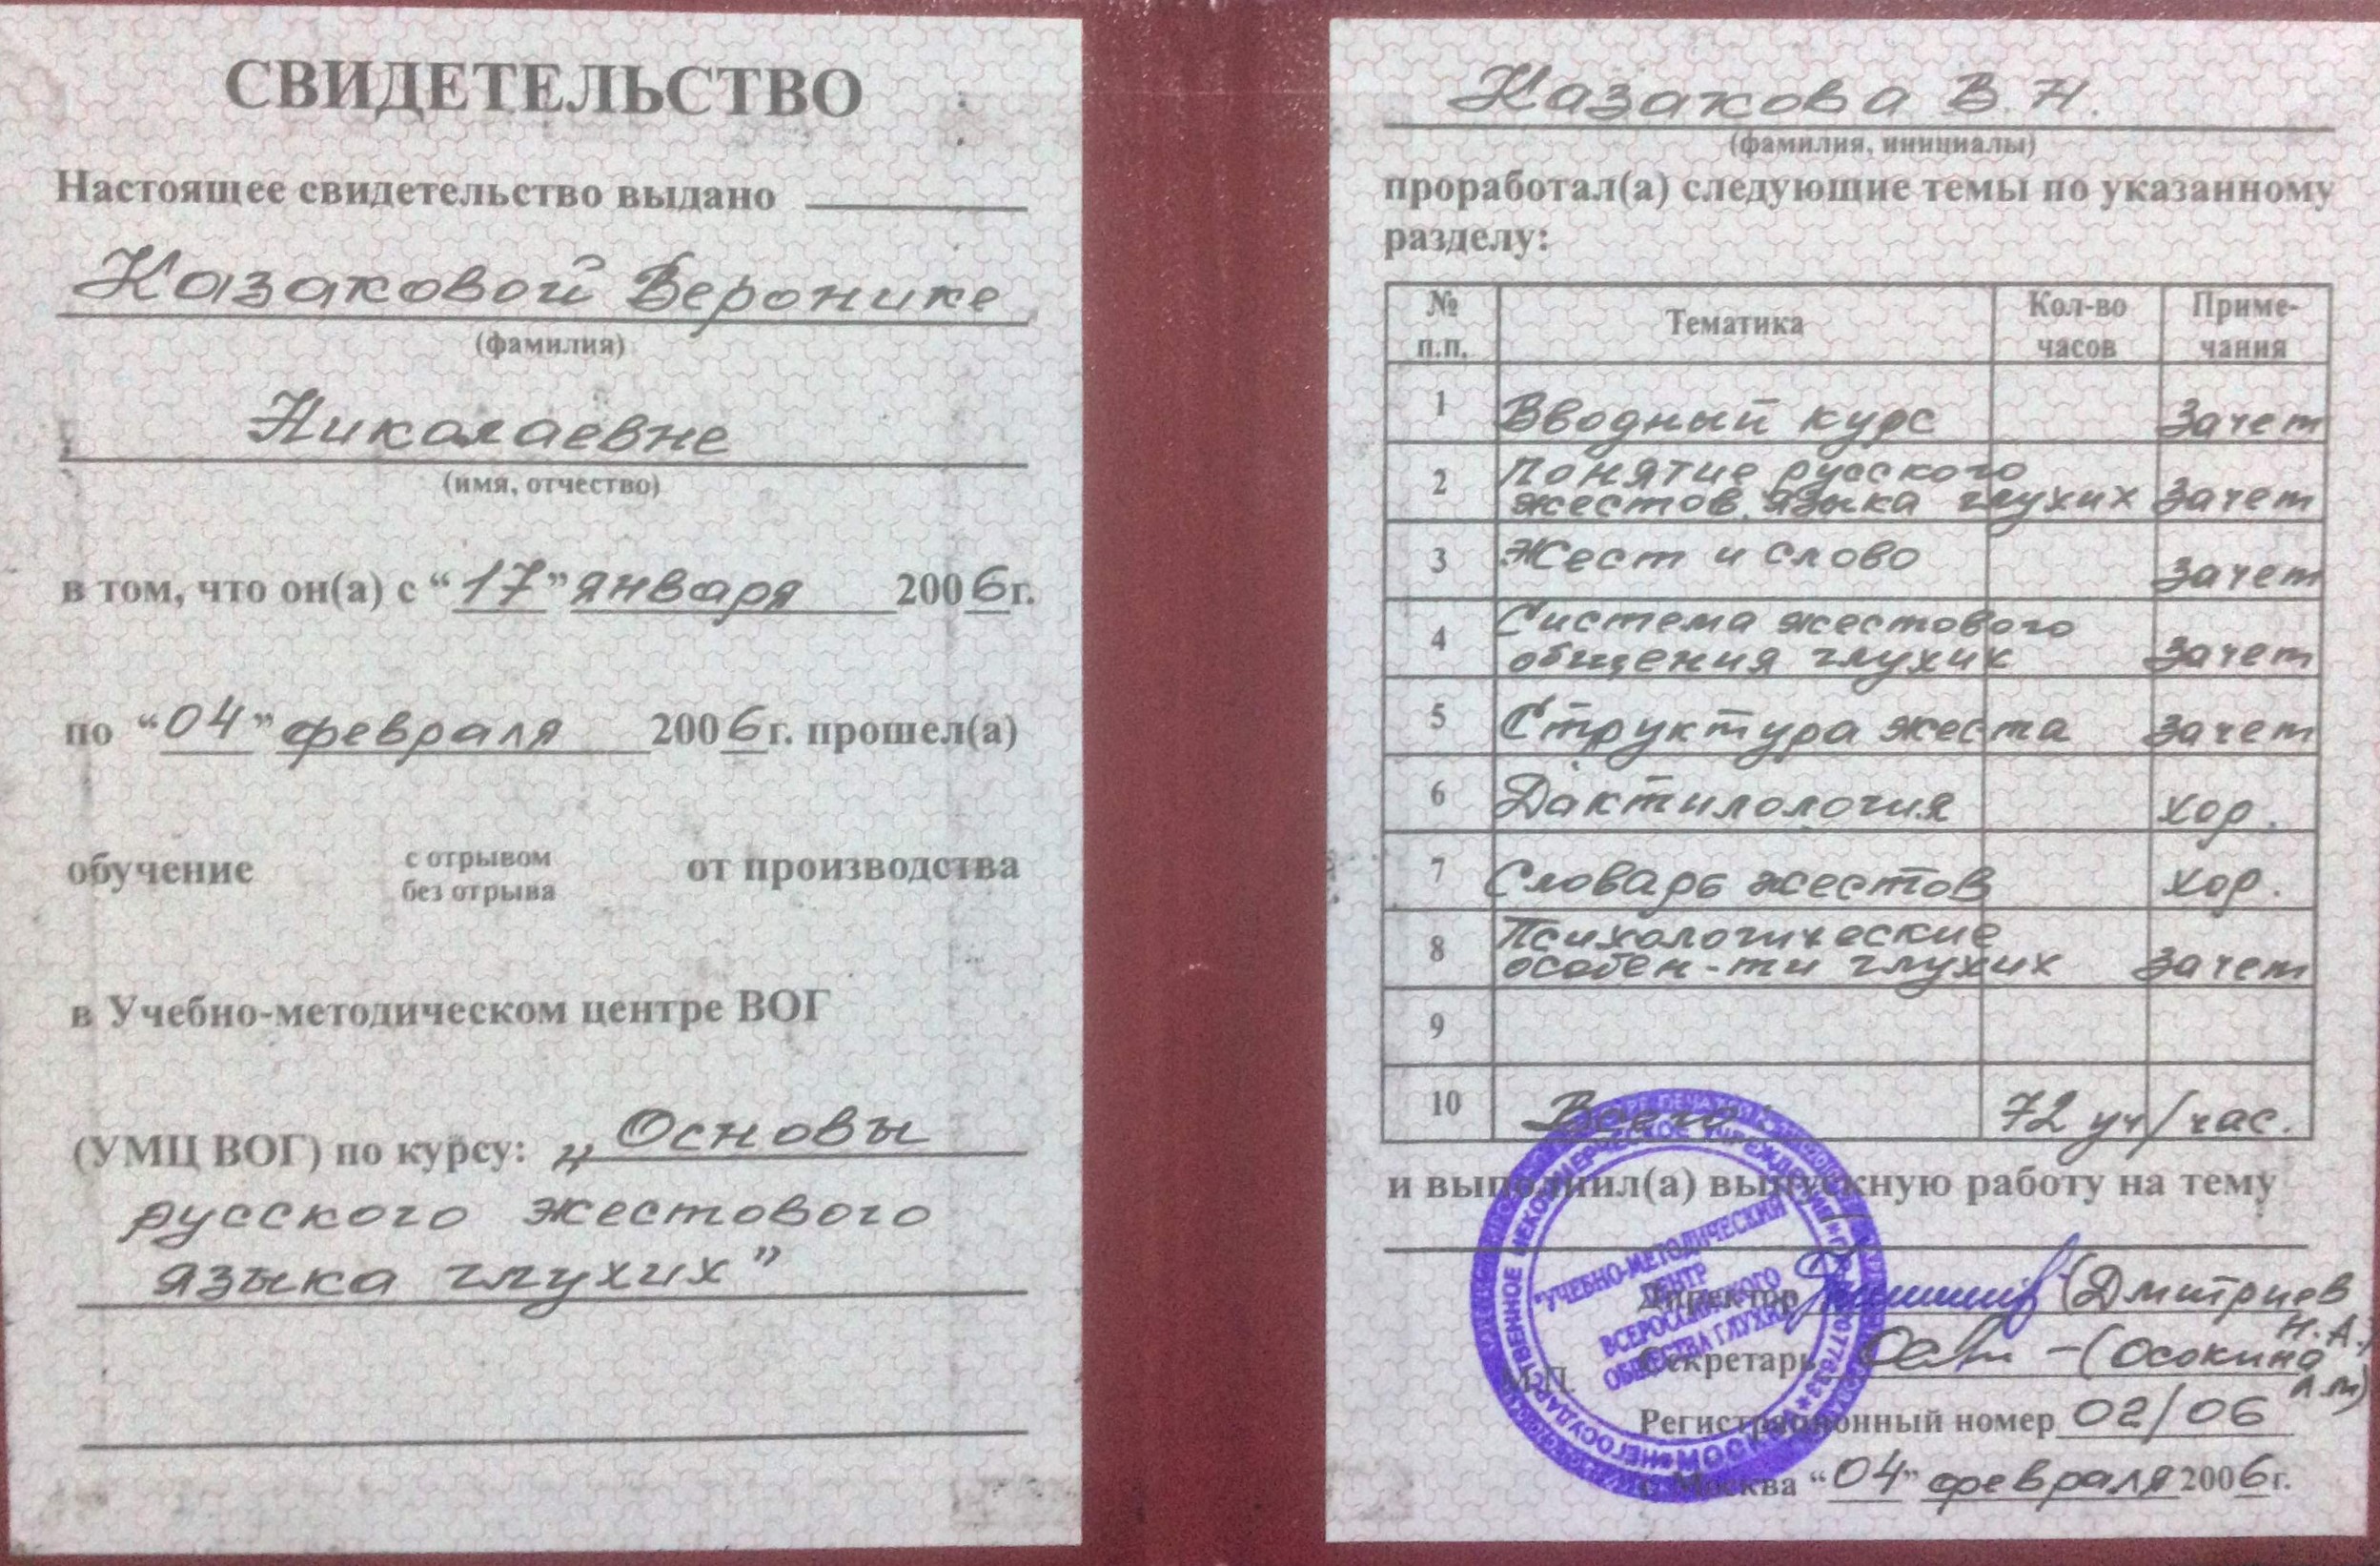 СВИДЕТЕЛЬСТВО
Настоящее свидетельство выдано
Казаковой Веронике
(фамилия)
Николаевне
(имя, отчество)
в том, что он(а) с “17” января 2006г.
по “04” февраля 2006г. прошел(а)
обучение с отрывом от производства
без отрыва
в Учебно-методическом центре ВОГ
(УМЦ ВОГ) по курсу: „Основы
русского жестового
языка глухих”
Казакова В.Н.
(фамилия, инициалы)
проработал(а) следующие темы по указанному
разделу:
№ п.п. Тематика Кол-во часов Приме-чания
1 Вводный курс Зачет
2 Понятие русского
жестов. языка глухих Зачет
3 Жест и слово Зачет
4 Система жестового
общения глухих Зачет
5 Структура жеста Зачет
6 Дактилология хор.
7 Словарь жестов хор.
8 Психологические
особен-ти глухих Зачет
9
10 Всего 72 уч/час.
и выполнил(а) выпускную работу на тему
Директор (Дмитриев
Н.А.)
Секретарь (Осокина
Л.М)
М.П.
Регистрационный номер 02/06
г. Москва “04” февраля 2006г.
"УЧЕБНО-МЕТОДИЧЕСКИЙ
ЦЕНТР
ВСЕРОССИЙСКОГО
ОБЩЕСТВА ГЛУХИХ
НЕГОСУДАРСТВЕННОЕ НЕКОММЕРЧЕСКОЕ УЧРЕЖДЕНИЕ
МОСКВА